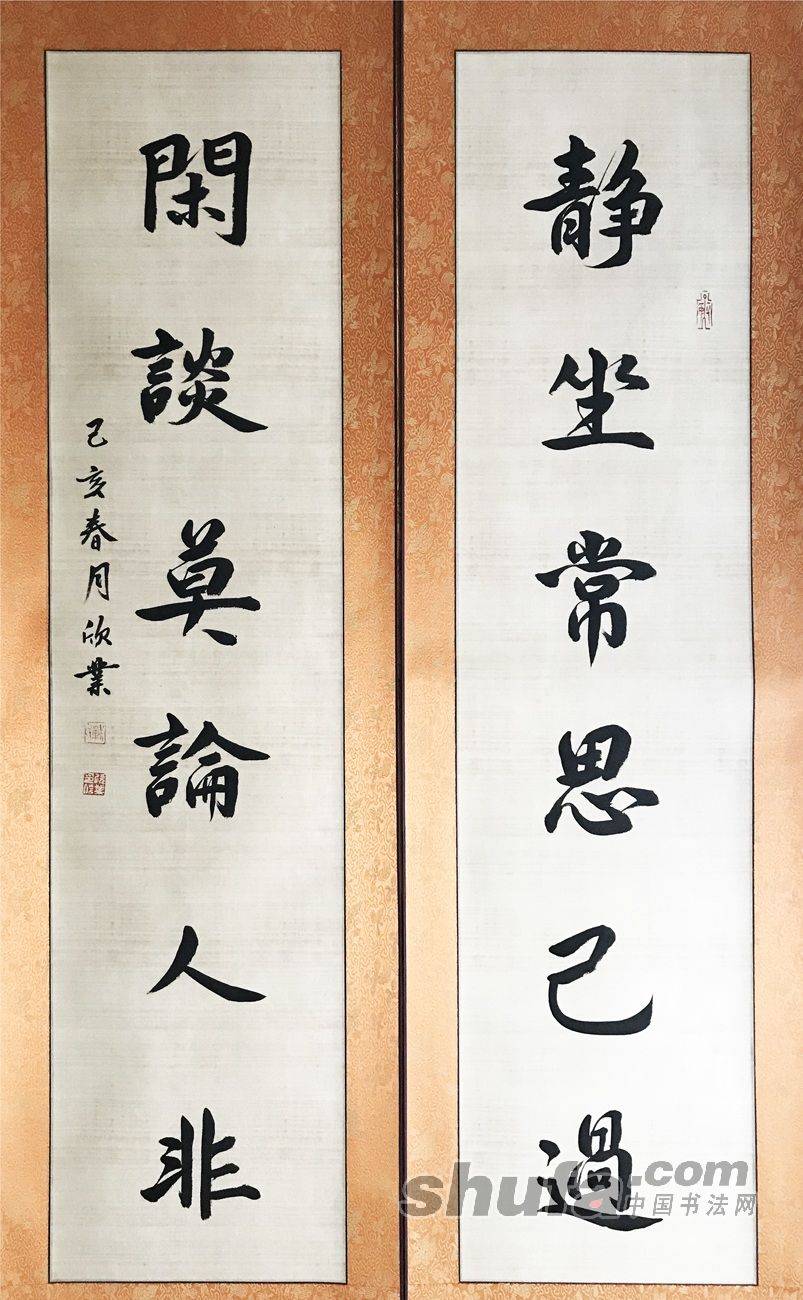 静坐常思己過
閑談莫論人非
己亥春月欣業
shufa.com
中国书法网